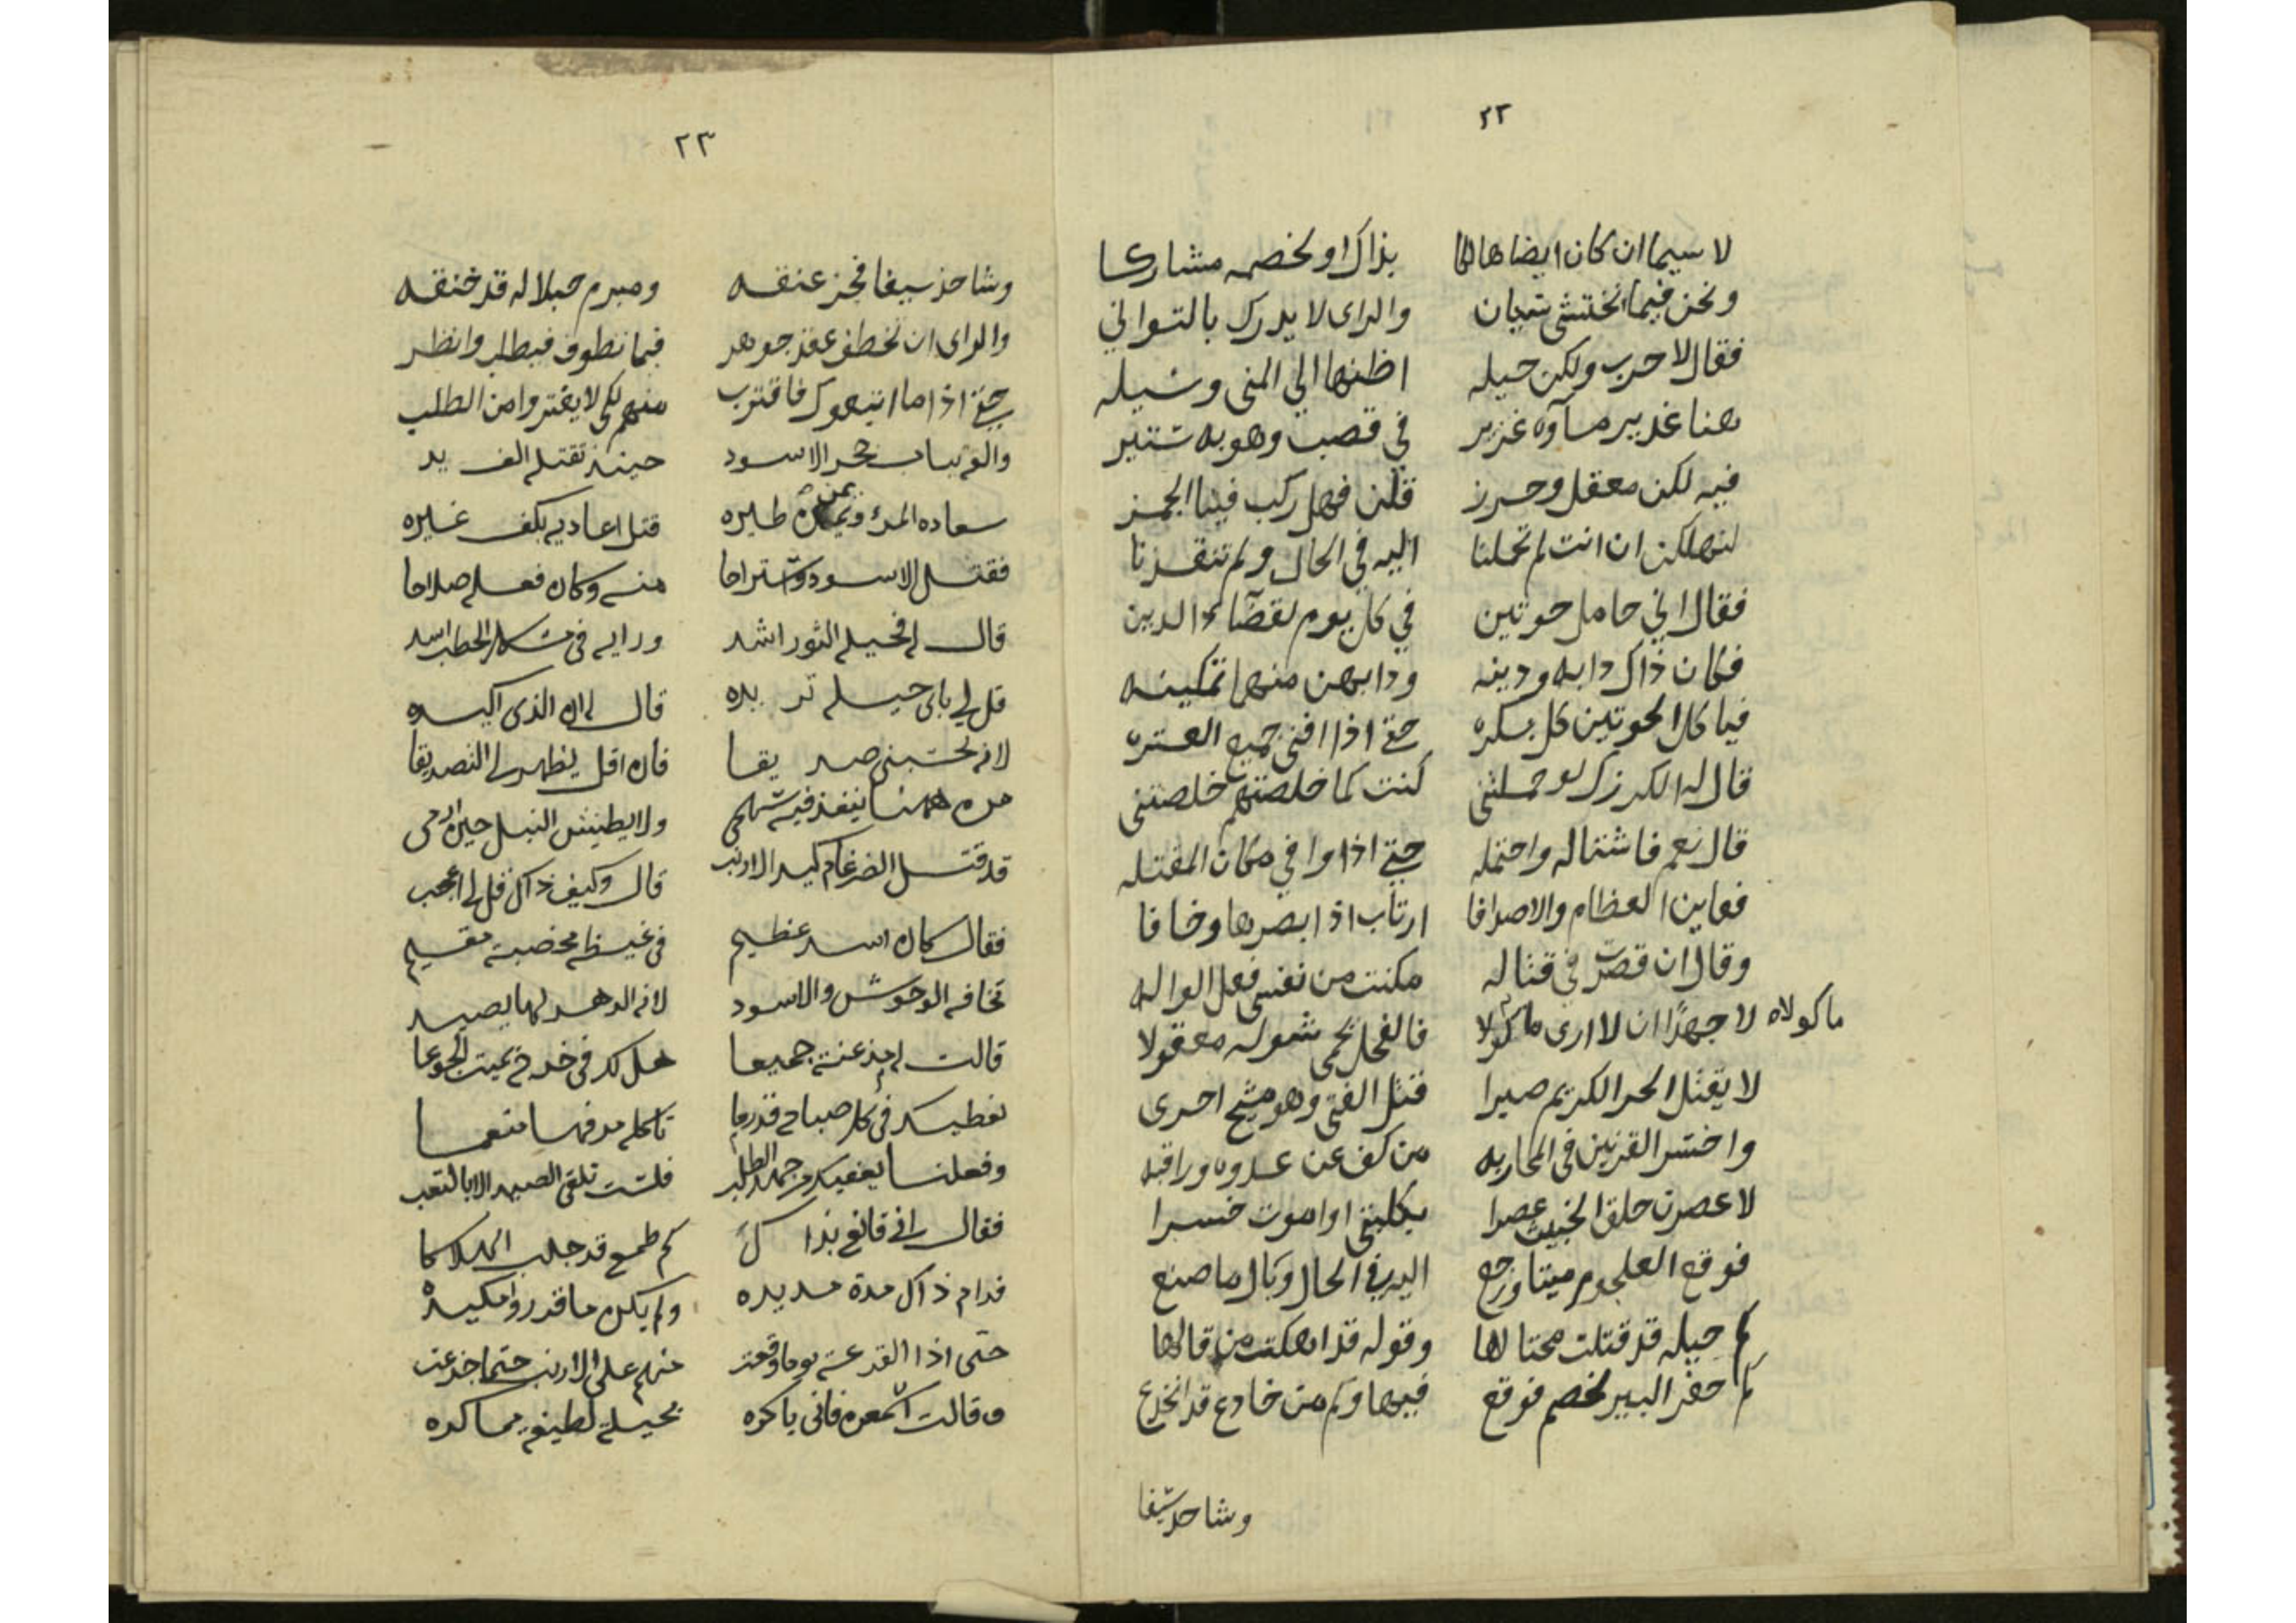 ٢٢
لا سيما ان كان ايضا هالكا بذاك او لخصمه مشاركا
ونحن فيما نختشى سيان والراى لا يدرك بالتواني
فقال لا حرب ولكن حيله اظنها الي المنى وسيله
هنا غدير مآوه غزير في قصب وهو به ستير
فيه لكن معقل وحرز قلن فهل ركب فينا العجز
لنهلكن ان انت لم تحملنا اليه في الحال ولم تنقذنا
فقال اني حامل حوتين في كل يوم لقضآء الدين
فكان ذاك دابه ودينه ودابهن منها تمكينه
فياكل الحوتين كل بكره حتي اذا افنى جميع العتره
قال له الكركرك لو حملتني كنت كما خلصتهم خلصتني
قال نعم فاشتاله واحتمله حتي اذا وافي مكان المقتله
فعاين العظام والاصدافا ارتاب اذ ابصرها وخافا
وقال ان قصرت في قتاله مكنت من نفسى فعل الواله
لا جهدًا ان لا ارى ماكولا فالفحل يحمى شوله معقولا
ماكولاه
لا يقتل الحر الكريم صبرا قتل الفتى وهو مشيح احرى
واخسر القرنين في المحاربه من كف عن عدوه وراقبه
لاعصرن حلق الخبيث عصرا بكلبتى او اموت خسرا
فوقع العلجوم ميتا ورجع اليه في الحال وبال ما صنع
كم حيله قد قتلت محتالها وقوله قد اهلكت من قالها
كم حفر البير لخصم فوقع فيها وكم من خادع قد انخدع
وشاحذ سيفا
٢٣
وشاحذ سيفا فحز عنقه ومبرم حبلا له قد خنقه
والراى ان تخطف عقد جوهر فيما تطوف فيطلب وانظر
حتي اذا ما اتبعوك فاقترب منهم لكى لا يغتروا من الطلب
والق بباب جحر الاسود حينئذ تقتله الف يد
سعاده المرء ويمن طيره قتل اعاديه بكف غيره
فقتل الاسود واستراحا منه وكان فعله صلاحا
قال له فحيله الثور اشد ورايه في مشكل الخطب اسد
قل لي باى حيله تريده قال له ان الذى اكيده
لانه يحسبني صديقا فان اقل يظهر لي التصديقا
من ههنا ينفذ فيه سهمي ولا يطيش النبل حين ارمى
قد قتل الضرغام كيد الارنب قال وكيف ذاك قل لي اعجب
فقال كان اسد عظيم في غيضة مخصبة مقيم
تخافه الوحوش والاسود لانه الدهر لها يصيد
قالت له مذعنة جميعا هل لك في خدم تميت الجوعا
نعطيك في كل صباح قدرما تاكله مرفها منعما
وفعلنا يعفيك من جهد الطلب فلست تلقى الصيد الا بالتعب
فقال اني قانع بذاك كم طمع قد جلب الهلاكا
فدام ذاك مدة مديده ولم يكن ما قدروا مكيده
حتى اذا القرعة يوما وقعت منهم على الارنب حتما جزعت
وقالت اسمعوه فاني ياكره بحيلة لطيفه مماكره